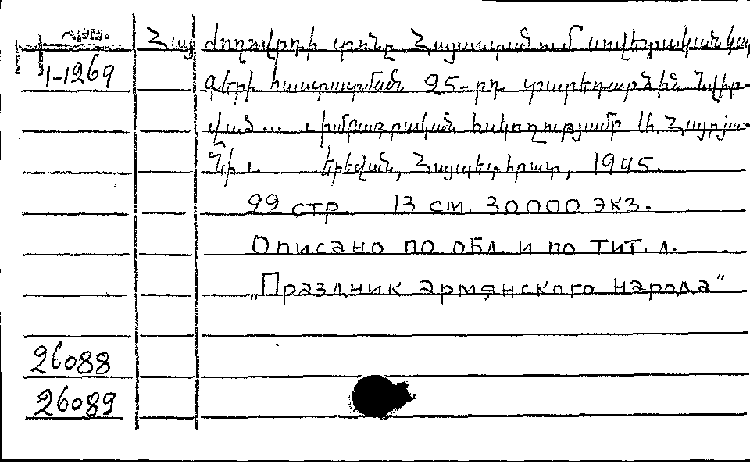 Հայ ժողովրդի տոնը Հայաստանում սովետական կար-
գերի հաստատման 25-րդ տարեդարձին նվիր-
1-1269
ված ... խմբագրական հսկողությամբ
նի. Երևան, Հայպետհրատ, 1945
99 стр 13 см. 30000 экз.
Описано по обл. и по тит. л.
„Праздник армянского народа"
26088
26089